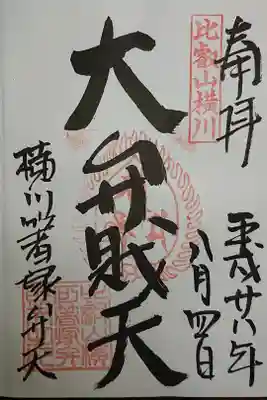 奉拝
比叡山横川
平成廿八年
八月四日
大弁財天
横川箸塚弁天